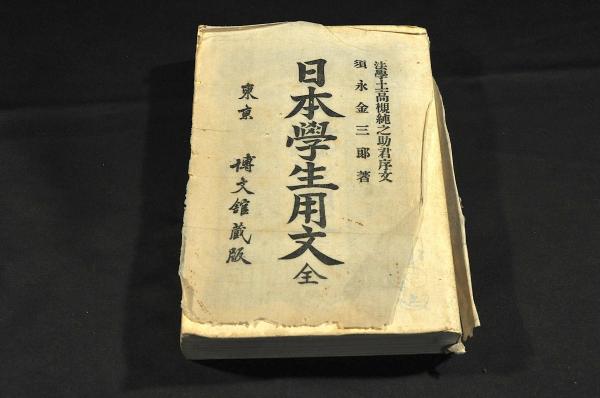 法學士高槻純之助君序文
須永金三郎著
日本學生用文全
東京 博文館蔵版